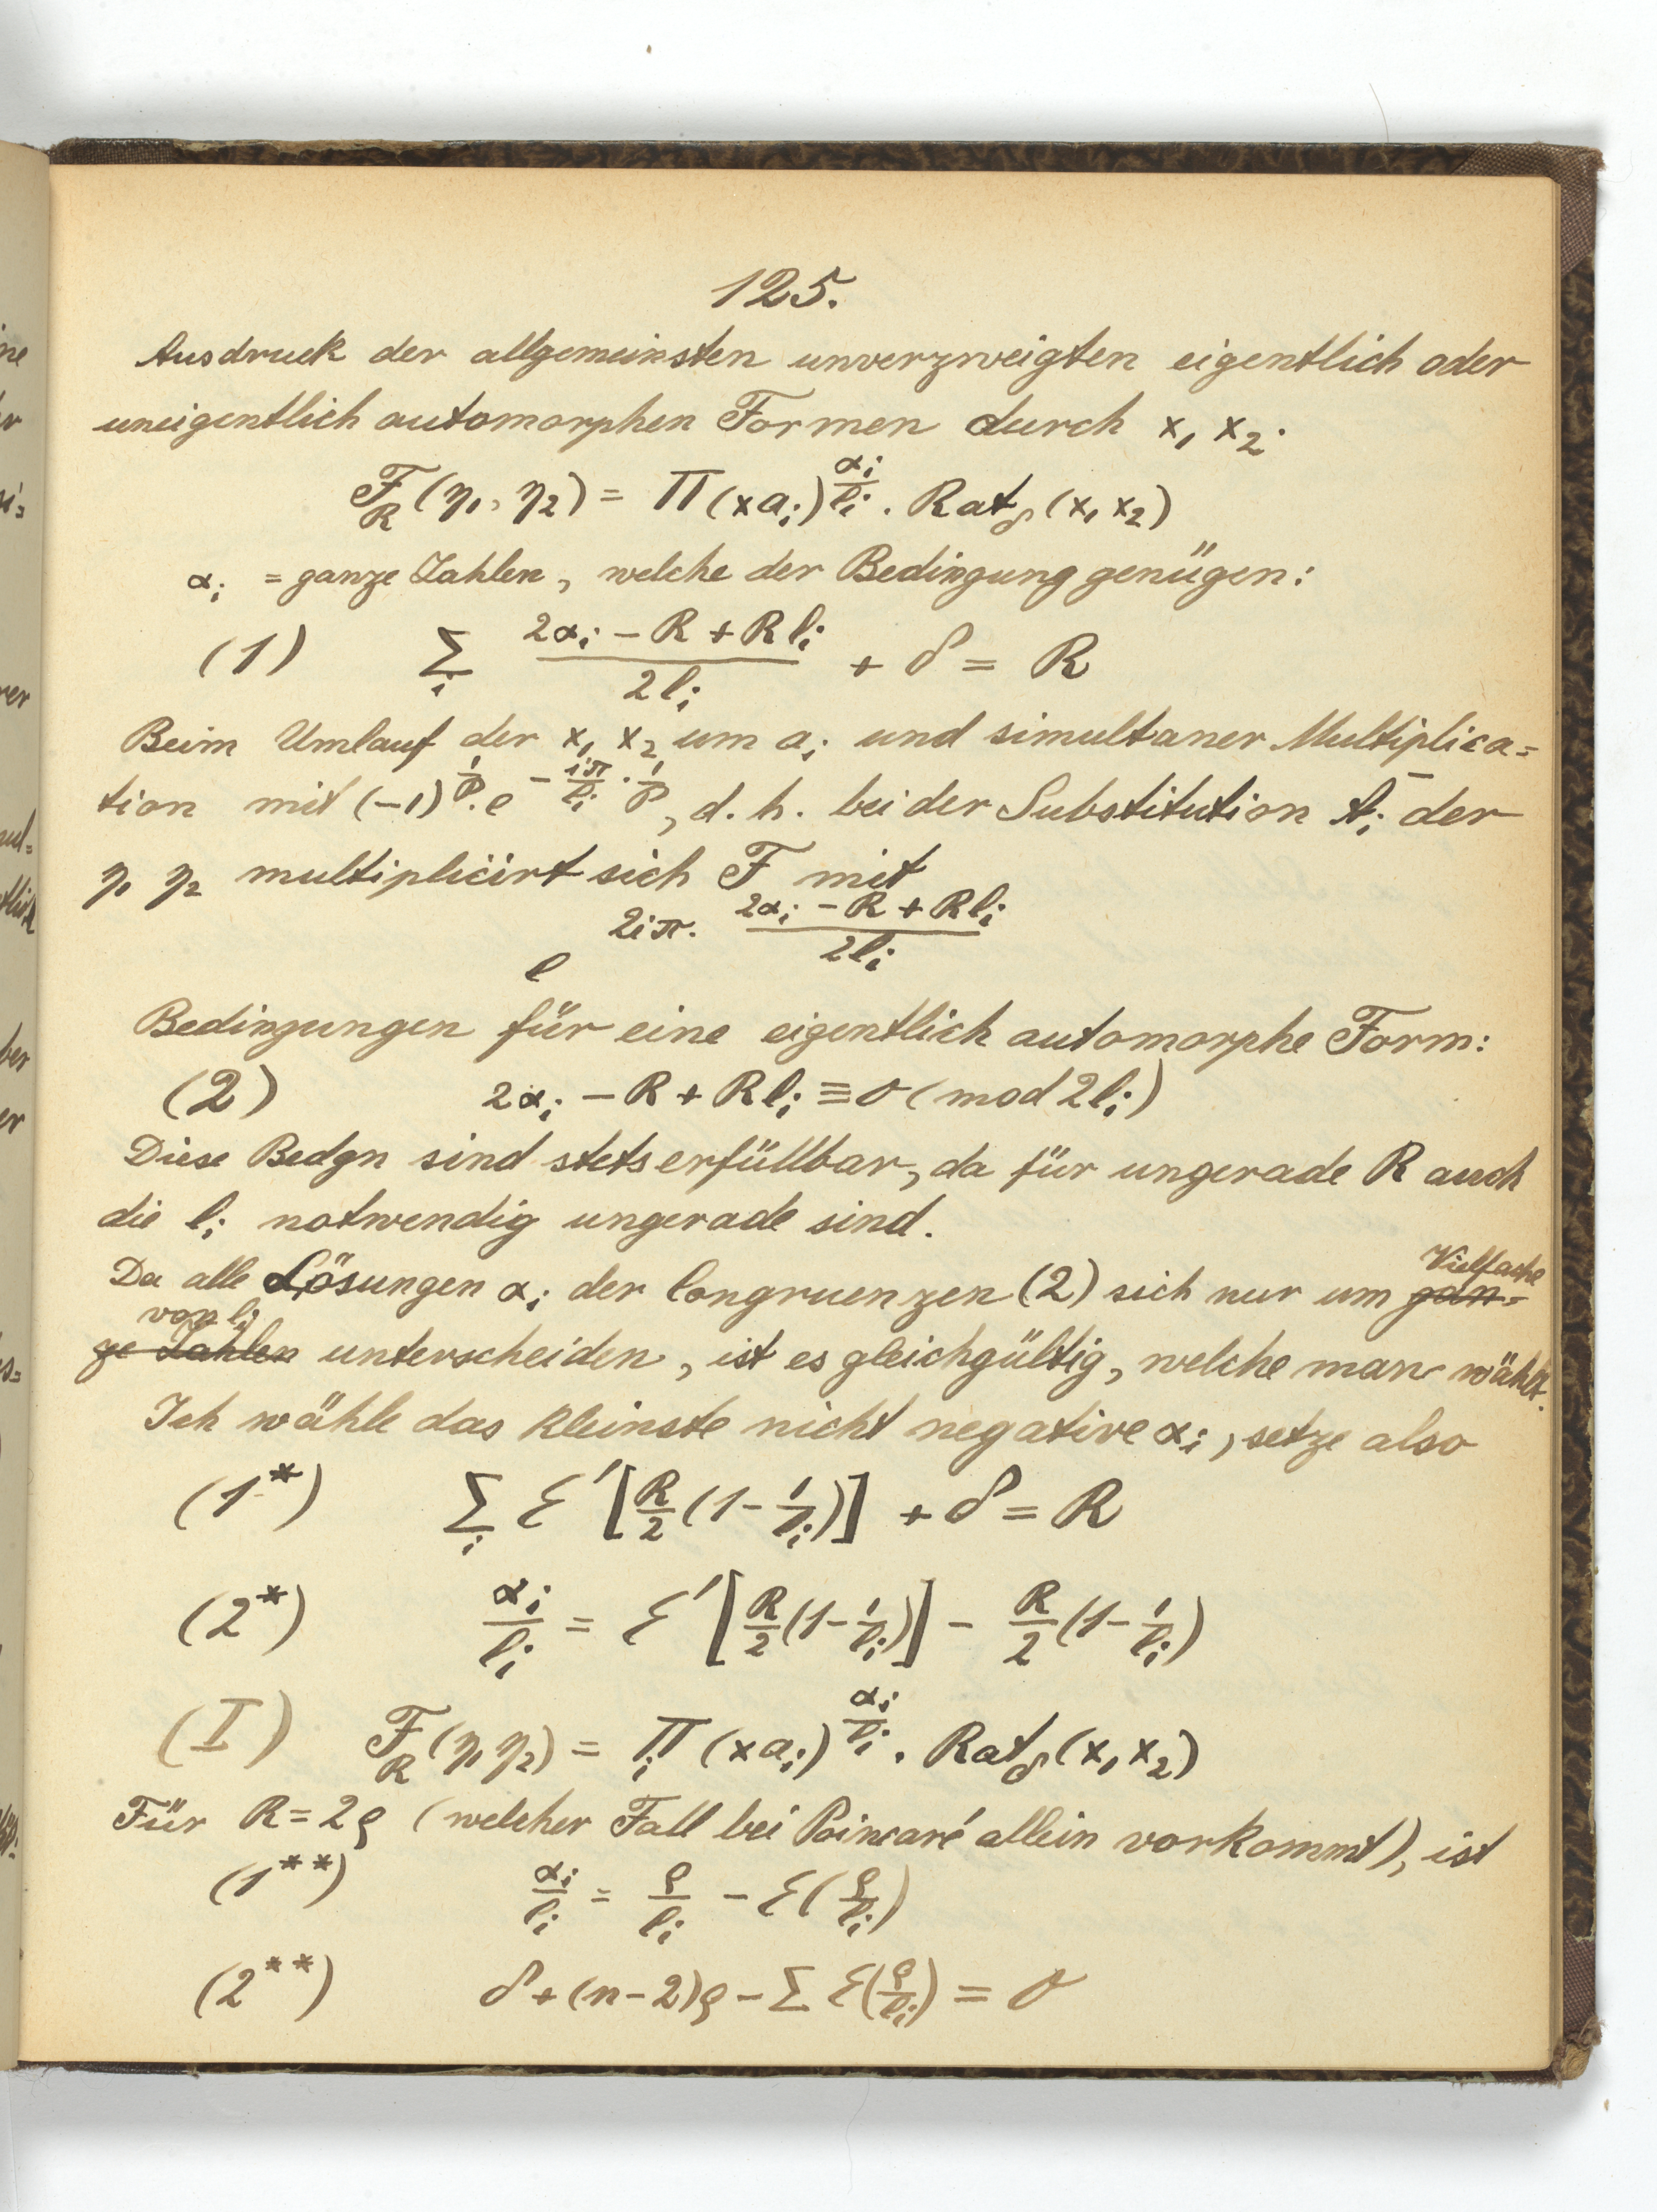 125.
Ausdruck der allgemeinsten unverzweigten eigentlich oder
uneigentlich automorphen Formen durch x₁ x₂.
F_R (η₁, η₂) = Π (x a_i)^{α_i/l_i} . Rat_δ (x₁ x₂)
α_i = ganze Zahlen, welche der Bedingung genügen:
(1) Σ_i (2α_i − R + R l_i)/(2 l_i) + δ = R
Beim Umlauf der x₁ x₂ um a_i und simultaner Multiplica=
tion mit (−1)^{1/p} . e^{− iπ/l_i · 1/p}, d. h. bei der Substitution der
η₁ η₂ multiplicirt sich F mit
e^{2iπ · (2α_i − R + R l_i)/(2 l_i)}
Bedingungen für eine eigentlich automorphe Form:
(2) 2α_i − R + R l_i ≡ 0 (mod 2 l_i)
Diese Bedgn sind stets erfüllbar, da für ungerade R auch
die l_i notwendig ungerade sind.
Da alle Lösungen α_i der Congruenzen (2) sich nur um gan= Vielfache
ge Zahlen von l_i unterscheiden, ist es gleichgültig, welche man wählt.
Ich wähle das kleinste nicht negative α_i, setze also
(1*) Σ_i Ɛ′ [R/2 (1 − 1/l_i)] + δ = R
(2*) α_i/l_i = Ɛ′ [R/2 (1 − 1/l_i)] − R/2 (1 − 1/l_i)
(I) F_R (η₁ η₂) = Π_i (x a_i)^{α_i/l_i} . Rat_δ (x₁ x₂)
Für R = 2ϱ (welcher Fall bei Poincaré allein vorkommt), ist
(1**) α_i/l_i = ϱ/l_i − Ɛ(ϱ/l_i)
(2**) δ + (n−2)ϱ − Σ Ɛ(ϱ/l_i) = 0